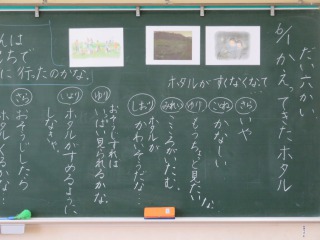 だい六かい
6/1 かえってきたホタル
ホタルがすくなくなって
さら いや
こねね かなしい
ゆり もうちょっと見たいな。
みれい こころがいたむ。
しおり ホタルが
かわいそうだな…
ゆり おそうじすれば
いっぱい見られるかな。
ホタルがすめるように
しなきゃ。
さら おそうじしたら
ホタルくるかな…
んは
ちで
に行ったのかな。